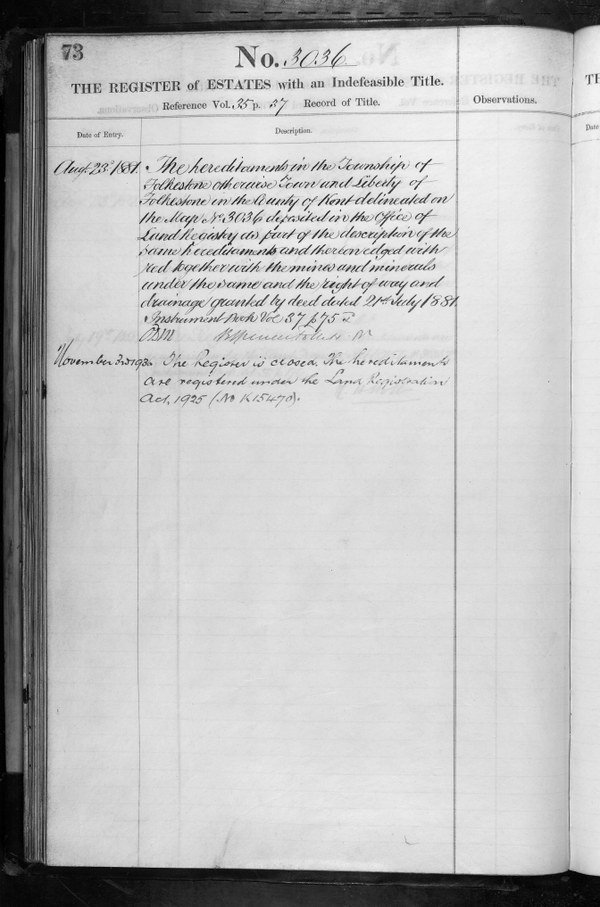 73
No. 3036
THE REGISTER of ESTATES with an Indefeasible Title.
Reference Vol. 35 p. 57 Record of Title.
Observations.
Date of Entry.
Description.
Augt. 23d 1881.
The hereditaments in the Township of
Folkestone otherwise Town and Liberty of
Folkestone in the County of Kent delineated on
the Map No. 3036 deposited in the Office of
Land Registry as part of the description of the
same hereditaments and thereon edged with
red together with the mines and minerals
under the same and the right of way and
drainage granted by deed dated 21st July 1881
Instrument Book Vol 37 p 75
November 3rd 1930.
The Register is closed. The hereditaments
are registered under the Land Registration
Act, 1925 (No K15470).
TH
Date